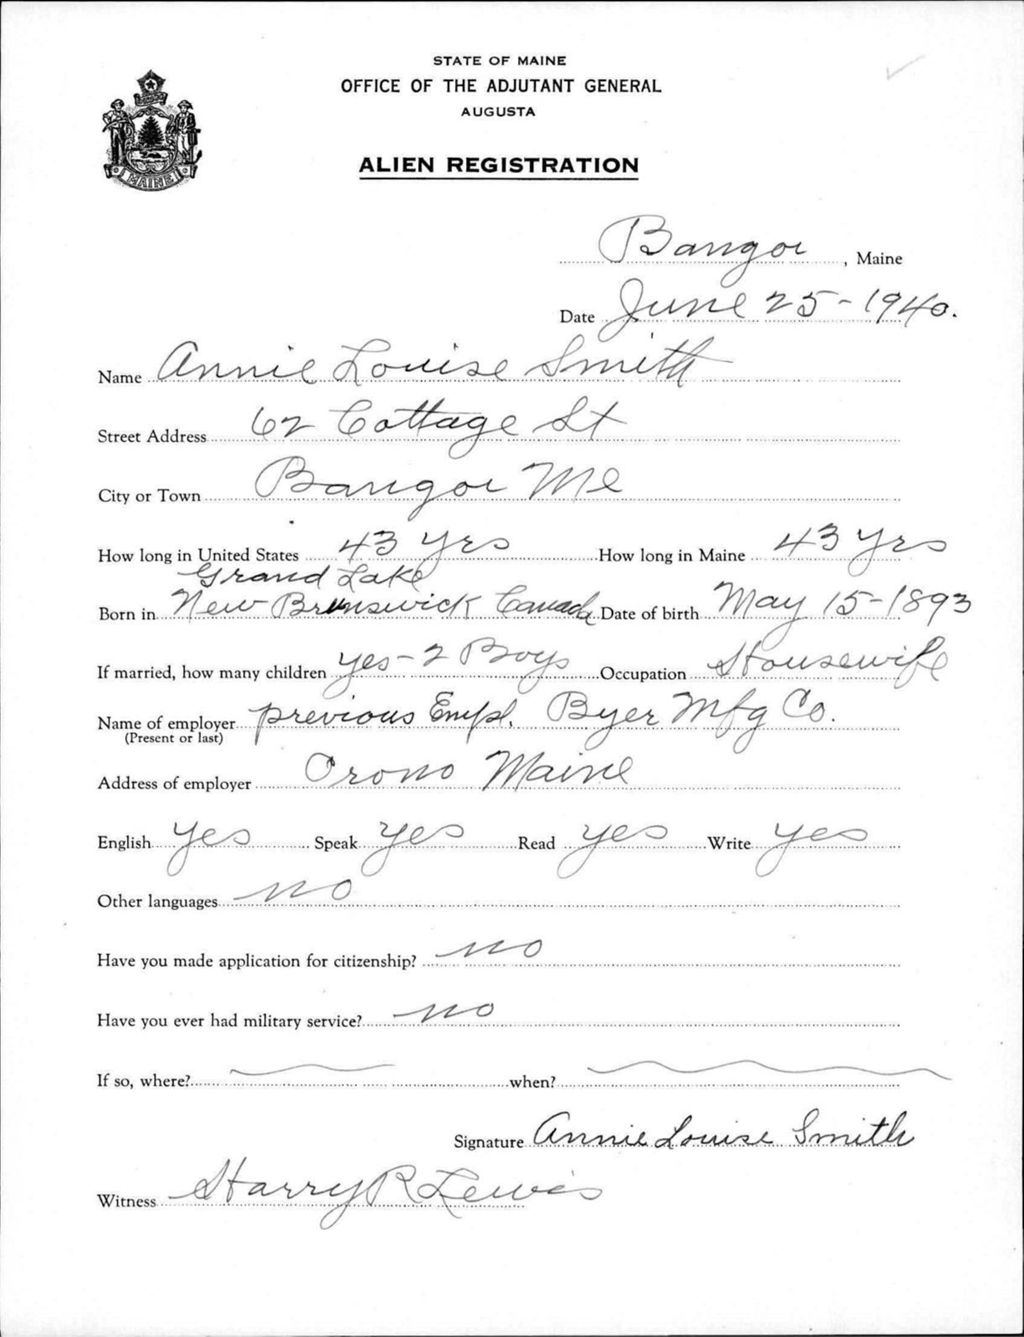 STATE OF MAINE
OFFICE OF THE ADJUTANT GENERAL
AUGUSTA
MAINE
ALIEN REGISTRATION
Bangor, Maine
Date June 25-1940.
Name Annie Louise Smith
Street Address 62 Cottage St
City or Town Bangor Me
How long in United States 43 yrs How long in Maine 43 yrs
Grand Lake
Born in New Brunswick Canada Date of birth May 15-1893
If married, how many children yes-2 Boys Occupation Housewife
Name of employer previous Empl. Byer Mfg Co.
(Present or last)
Address of employer Orono Maine
English yes Speak yes Read yes Write yes
Other languages no
Have you made application for citizenship? no
Have you ever had military service? no
If so, where? when?
Signature Annie Louise Smith
Witness Harry R Lewis